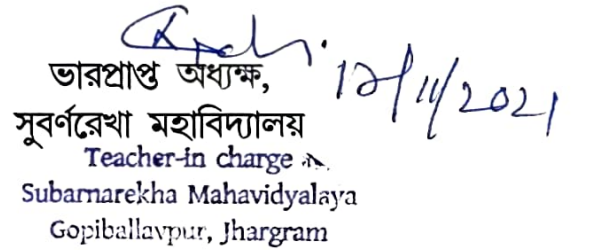 12/11/2021
ভারপ্রাপ্ত অধ্যক্ষ,
সুবর্ণরেখা মহাবিদ্যালয়
Teacher-in charge
Subarnarekha Mahavidyalaya
Gopiballavpur, Jhargram